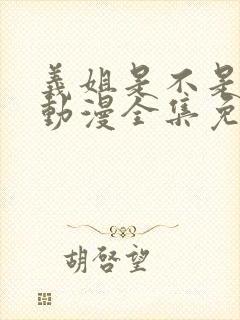 義姐是不是
動漫全集免
胡啓望